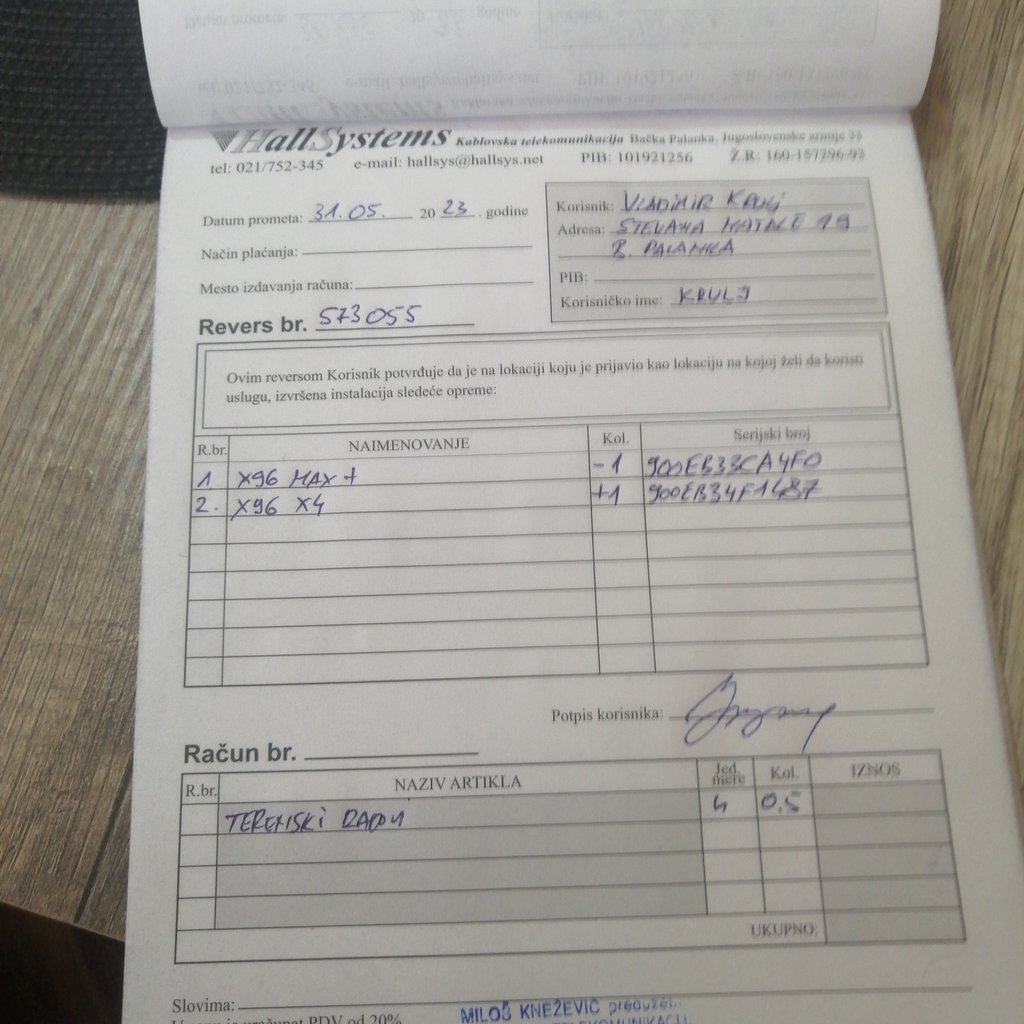 HallSystems Kablovska telekomunikacija Bačka Palanka, Jugoslovenske armije
tel: 021/752-345 e-mail: hallsys@hallsys.net PIB: 101921256 Ž.R: 160-157296-93
Datum prometa: 31.05. 20 23. godine
Način plaćanja:
Mesto izdavanja računa:
Korisnik: VLADIMIR
Adresa: STEVANA 19
B. PALANKA
PIB:
Korisničko ime: KRULJ
Revers br. 573055
Ovim reversom Korisnik potvrđuje da je na lokaciji koju je prijavio kao lokaciju na kojoj želi da koristi
uslugu, izvršena instalacija sledeće opreme:
R.br. NAIMENOVANJE Kol. Serijski broj
1 X96 MAX + -1 900EB33CA4F0
2. X96 X4 +1 900EB34F1487
Potpis korisnika:
Račun br.
R.br. NAZIV ARTIKLA Jed. mere Kol. IZNOS
TERENSKI RADOVI h 0.5
UKUPNO:
Slovima:
PDV od 20%
MILOŠ KNEŽEVIĆ preduzet.
TELEKOMUNIKACIJ